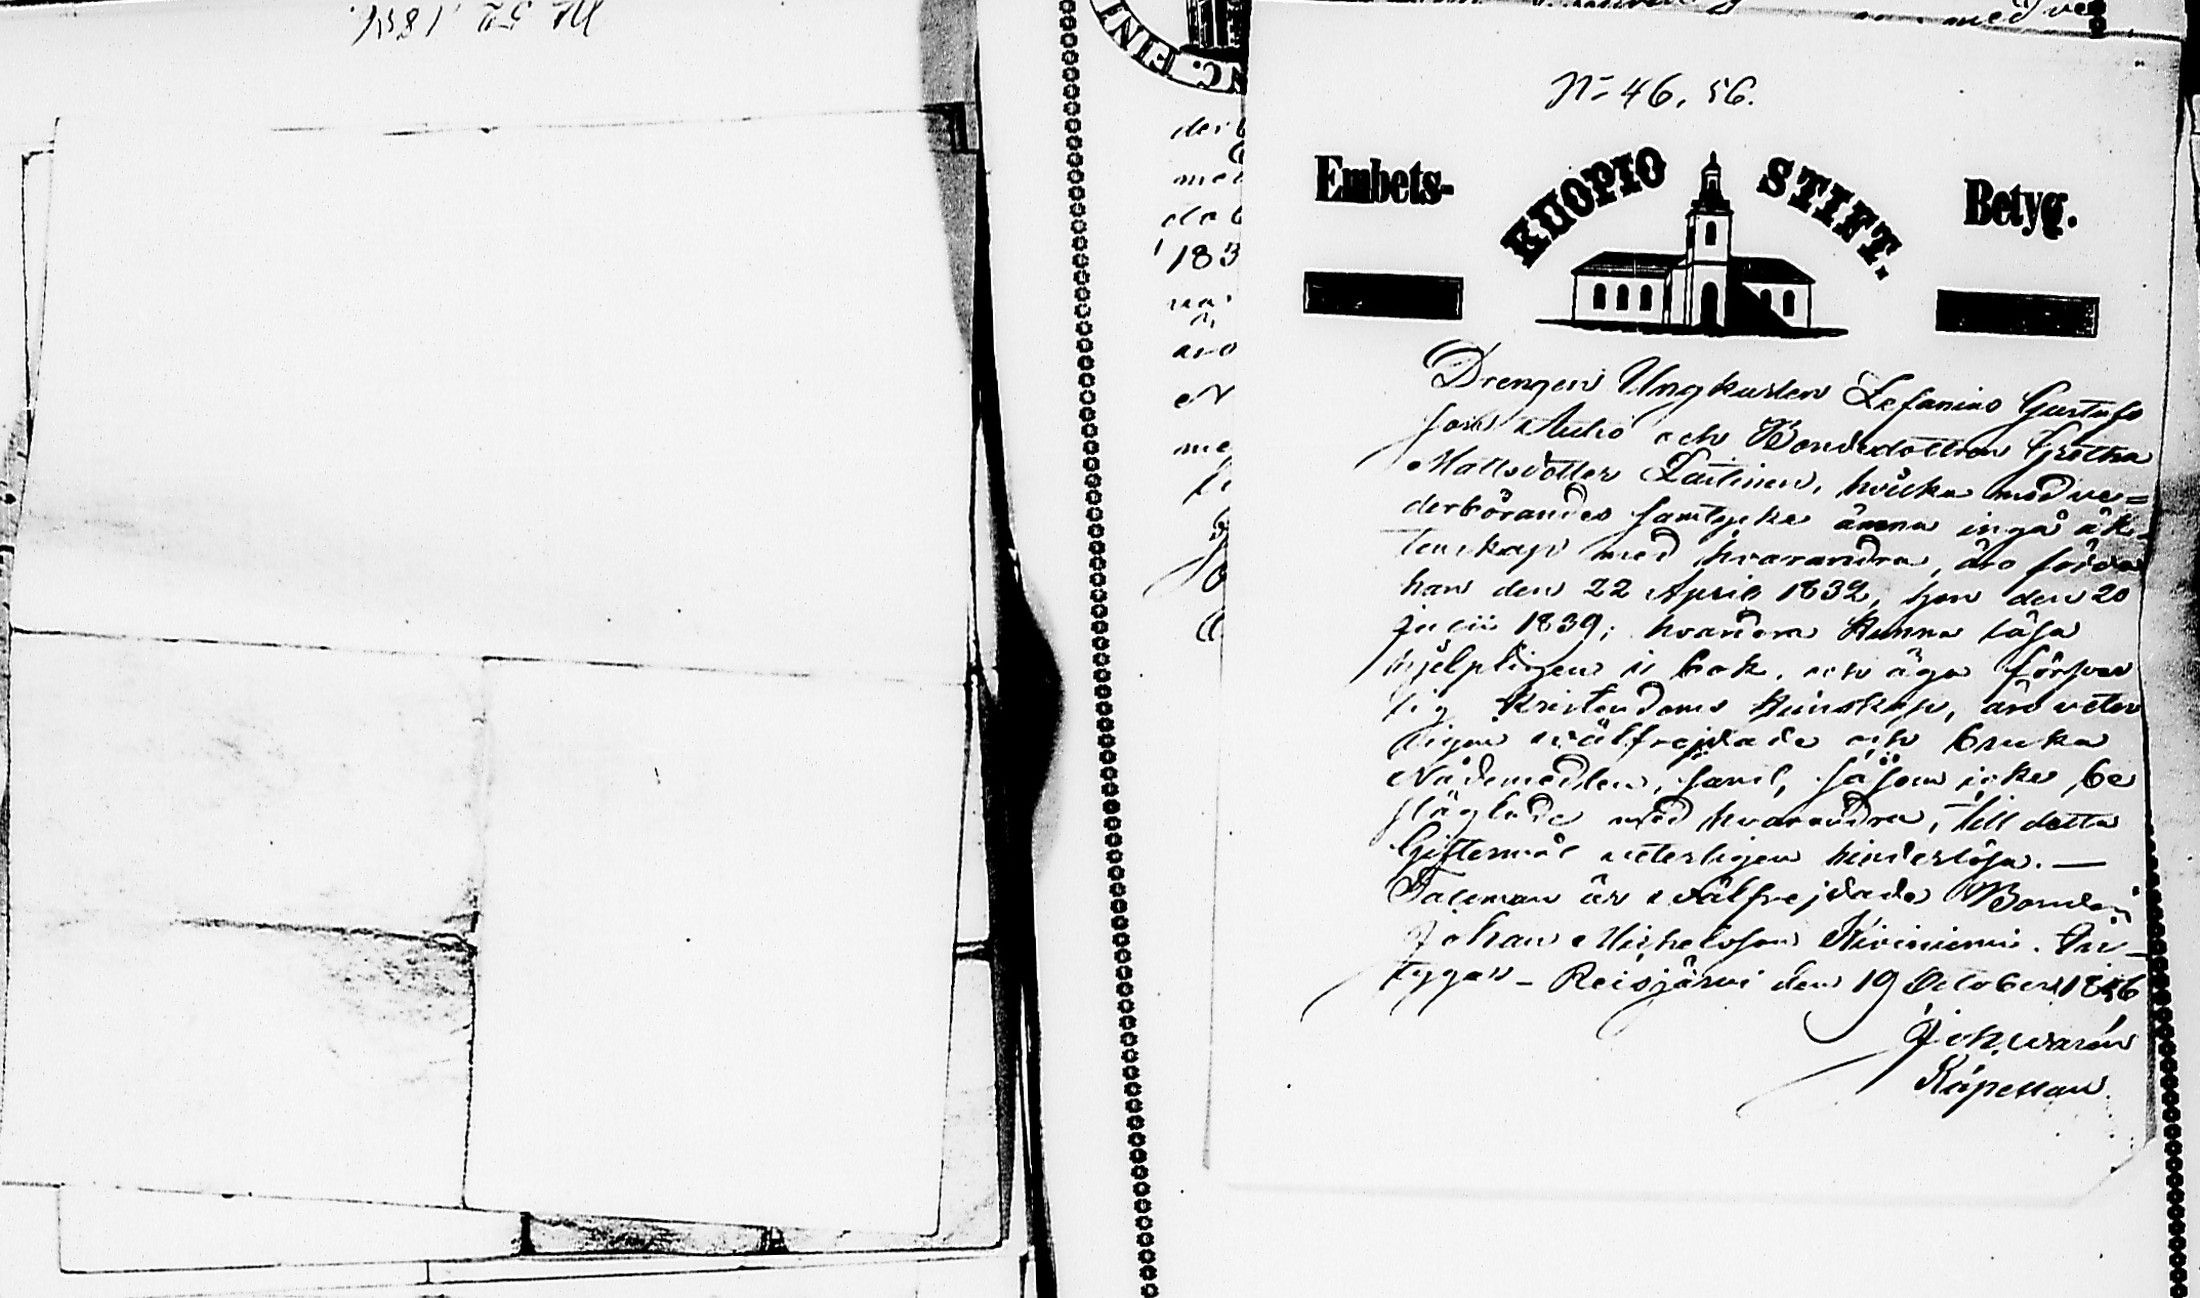 No 52. 1856.
C. FIN
der
med
183
N= 46. 56.
Embets-
KUOPIO STIFT.
Betyg.
Drengen Ungkarlen Zefanias Gustafs
son Autio och Bondedottren Gretha
Mattsdotter Laitinen, hvilka med ve=
derbörandes samtycke ämna ingå äk-
tenskap med hvarandra, äro födda
han den 22 April 1832, hon den 20
Julii 1839; hvardera kunna läsa
hjelpligen i bok, och äga försvar
lig Kristendoms kunskap, äro veter
ligen välfrejdade och bruka
Nådemedlen, samt, såsom icke be
slägtade med hvarandra, till detta
Giftermål veterligen hinderlösa. —
Taleman är välfrejdade Bonden
Johan Michelsson Kiviniemi. In-
tygar - Reisjärvi den 19 October 1856
Joh. 
Kapellan.